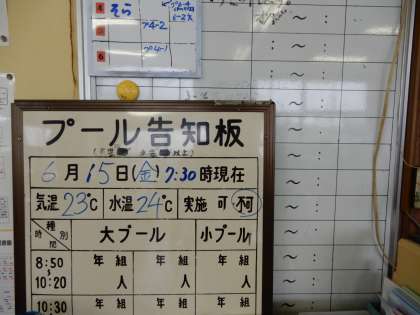 4 そら
6
プール告知板
6月15日(金)7:30時現在
気温23℃ 水温24℃ 実施 可 不可
種別 時間 大プール 小プール
8:50 年 組 年 組 年 組
~
10:20 人 人 人
10:30 年 組 年 組 年 組